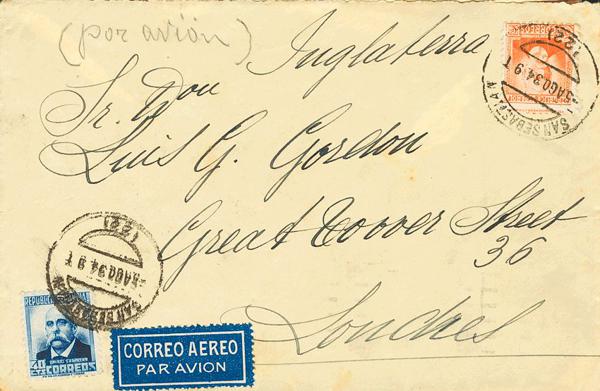 (por avión)
Inglaterra
Sr. Don
Luis G. Gordon
Great Tower Street
36
Londres
SAN SEBASTIAN
5 AGO 34 9 T
(22)
SAN SEBASTIAN
5 AGO 34 9 T
(22)
CORREOS
CORREO AEREO
PAR AVION